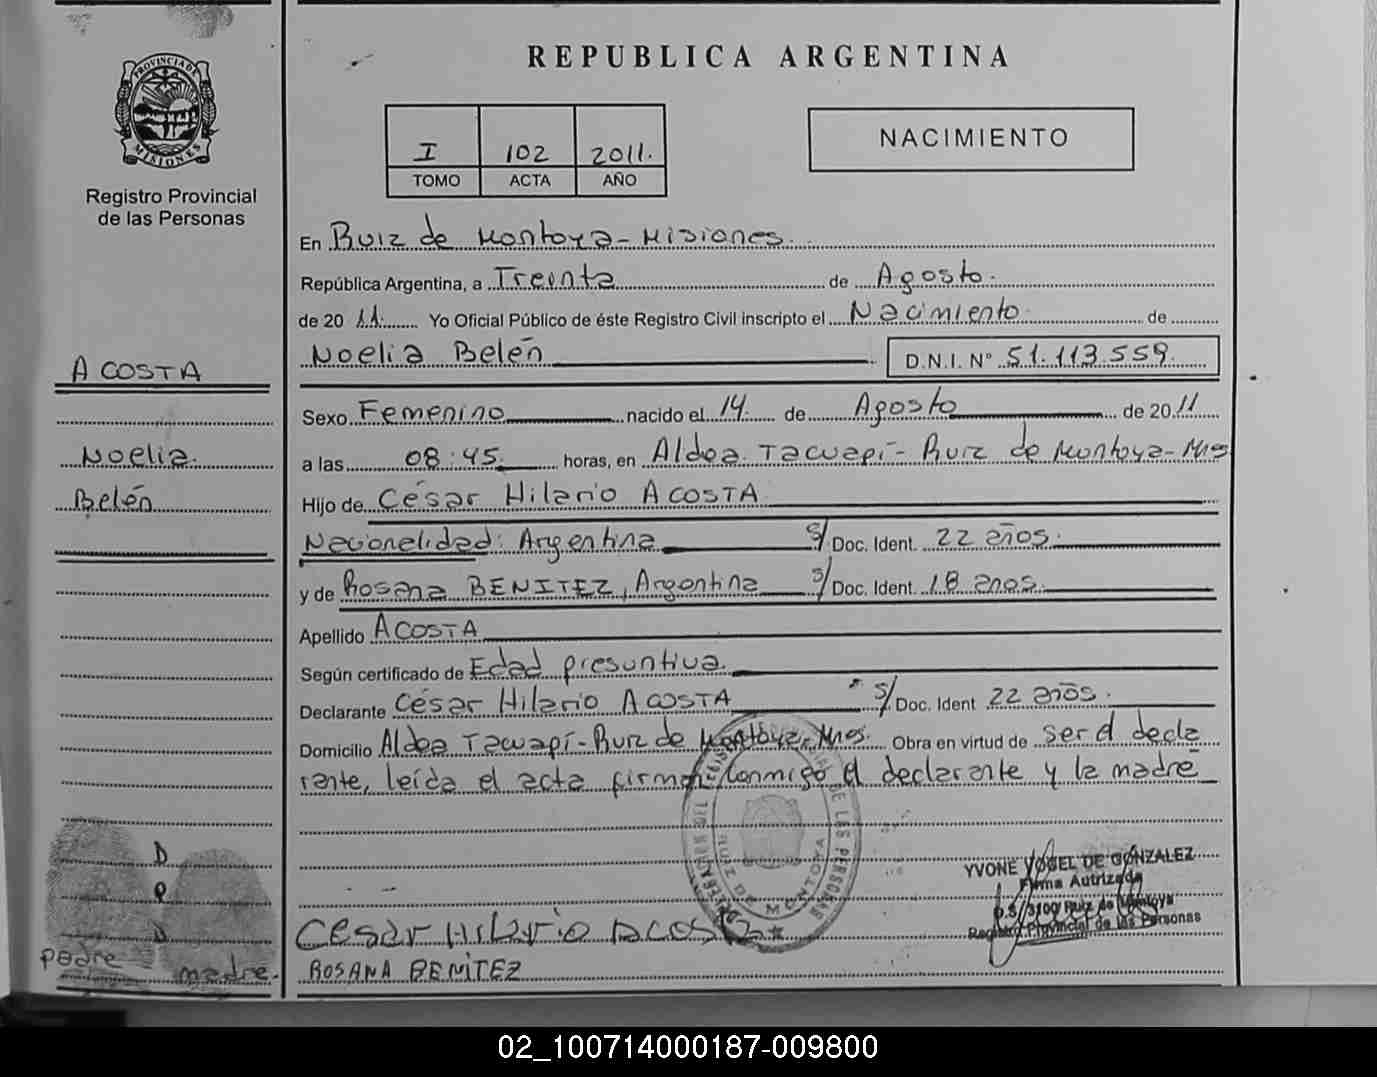 PROVINCIA DE
MISIONES
Registro Provincial
de las Personas
ACOSTA
Noelia
Belén
D
P
D
padre madre.
REPUBLICA ARGENTINA
I 102 2011.
TOMO ACTA AÑO
NACIMIENTO
En Ruiz de Montoya - Misiones.
República Argentina, a Treinta de Agosto.
de 20 11. Yo Oficial Público de éste Registro Civil inscripto el Nacimiento de
Noelia Belén D.N.I. N° 51.113.559.
Sexo Femenino nacido el 14 de Agosto de 2011
a las 08:45 horas, en Aldea Tacuapí - Ruiz de Montoya - Mnes
Hijo de César Hilario ACOSTA
Nacionalidad: Argentina S/ Doc. Ident. 22 años.
y de Rosana BENITEZ, Argentina S/ Doc. Ident. 18 anos.
Apellido ACOSTA
Según certificado de Edad presuntiva.
Declarante César Hilario ACOSTA S/ Doc. Ident 22 años.
Domicilio Aldea Tacuapí - Ruiz de Montoya, Mnes. Obra en virtud de ser el decla
rante, leída el acta firman conmigo el declarante y la madre
RUIZ DE MONTOYA
DE LAS PERSONAS
YVONE VOGEL DE GONZALEZ
Firma Autrizada
D.S/3100/ Ruiz de Montoya
Registro Provincial de las Personas
Cesar Hilario Acosta
ROSANA BENITEZ
02_100714000187-009800